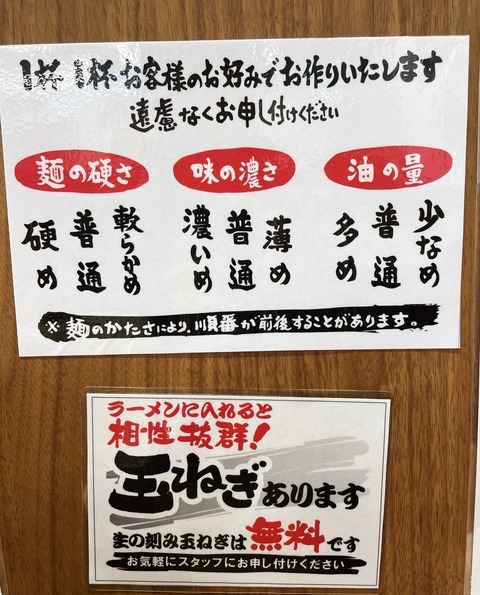 1杯1杯お客様のお好みでお作りいたします
遠慮なくお申し付けください
麺の硬さ 味の濃さ 油の量
硬め 普通 軟らかめ 濃いめ 普通 薄め 多め 普通 少なめ
※麺のかたさにより、順番が前後することがあります。
ラーメンに入れると
相性抜群!
玉ねぎあります
生の刻み玉ねぎは無料です
お気軽にスタッフにお申し付けください